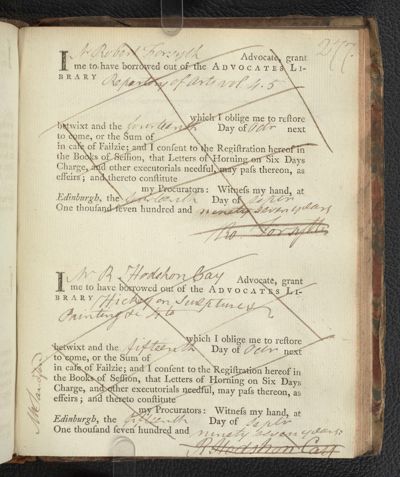 277.
I Mr Robert Forsyth Advocate, grant
me to have borrowed out of the ADVOCATES LI-
BRARY Repertory of Arts vol 4. 5
which I oblige me to reſtore
betwixt and the fourteenth Day of Octr next
to come, or the Sum of
in caſe of Failzie; and I conſent to the Regiſtration hereof in
the Books of Seſſion, that Letters of Horning on Six Days
Charge, and other executorials needful, may paſs thereon, as
effeirs; and thereto conſtitute
my Procurators: Witneſs my hand, at
Edinburgh, the Day of Septr
One thouſand ſeven hundred and ninety seven years
Ro. Forsyth
I Mr R. Hodshon Cay Advocate, grant
me to have borrowed out of the ADVOCATES LI-
BRARY Hickey on Sculpture &
Painting
which I oblige me to reſtore
betwixt and the fifteenth Day of Octr next
to come, or the Sum of
in caſe of Failzie; and I conſent to the Regiſtration hereof in
the Books of Seſſion, that Letters of Horning on Six Days
Charge, and other executorials needful, may paſs thereon, as
effeirs; and thereto conſtitute
my Procurators: Witneſs my hand, at
Edinburgh, the fifteenth Day of Septr
One thouſand ſeven hundred and ninety seven years
R. Hodshon Cay